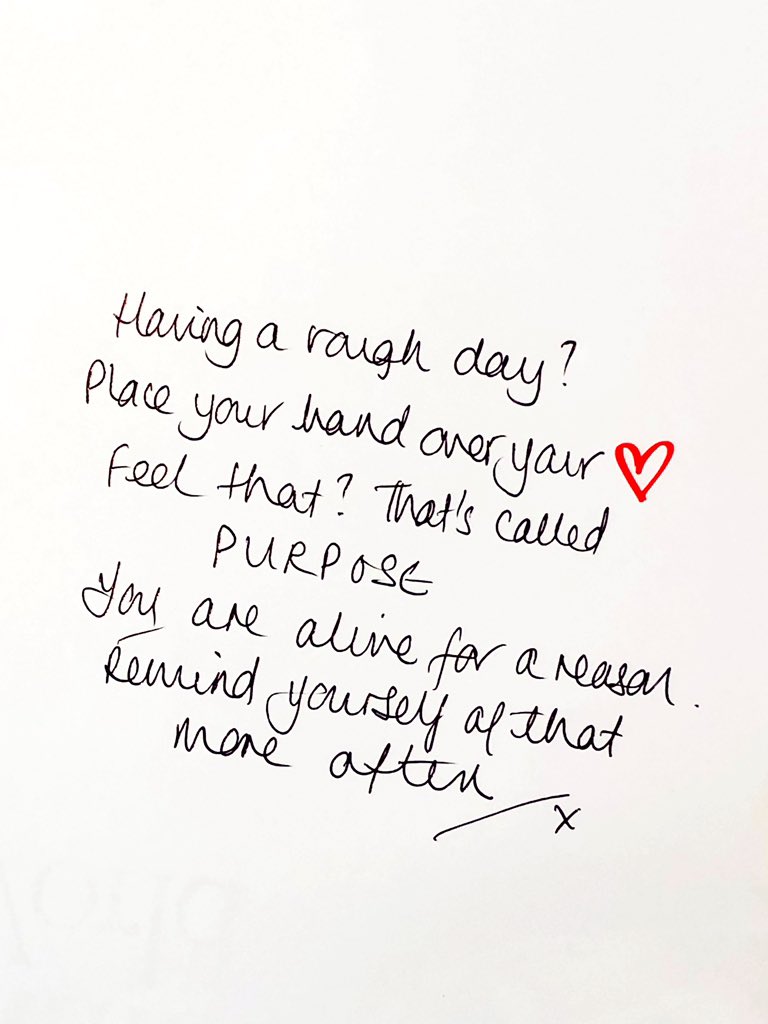 Having a rough day?
Place your hand over your ♥
Feel that? That's called
PURPOSE
You are alive for a reason.
Remind yourself of that
more often
x